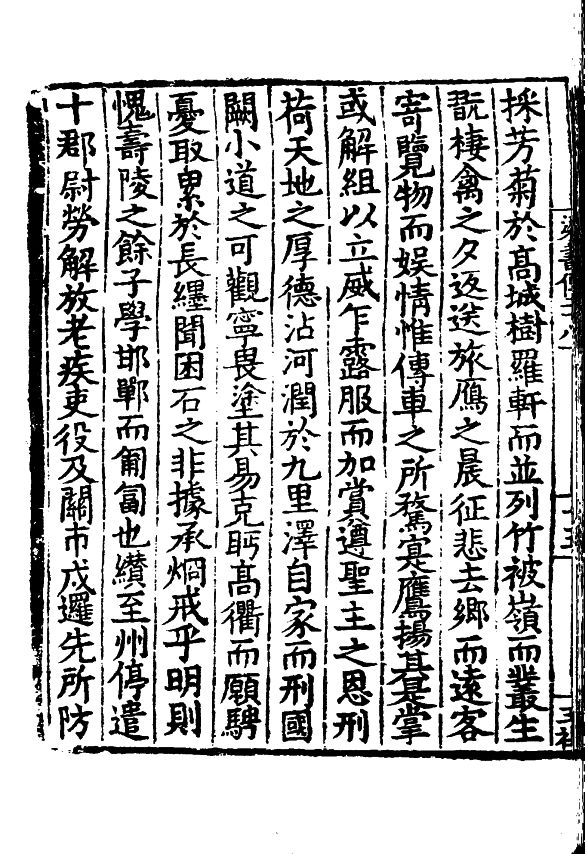 採芳菊於髙城樹羅軒而並列竹被嶺而叢生
翫棲禽之夕返送旅鴈之晨征悲去鄉而遠客
寄覽物而娛情惟傳車之所騖寔鷹揚其是掌
或解組以立威乍露服而加賞遵聖主之恩刑
荷天地之厚德沾河潤於九里澤自家而刑國
闕小道之可觀寧畏塗其易克眄髙衢而願騁
憂取累於長纆聞困石之非據承烱戒乎明則
愧壽陵之餘子學邯鄲而匍匐也纘至州停遣
十郡尉勞解放老疾吏役及關市戍邏先所防